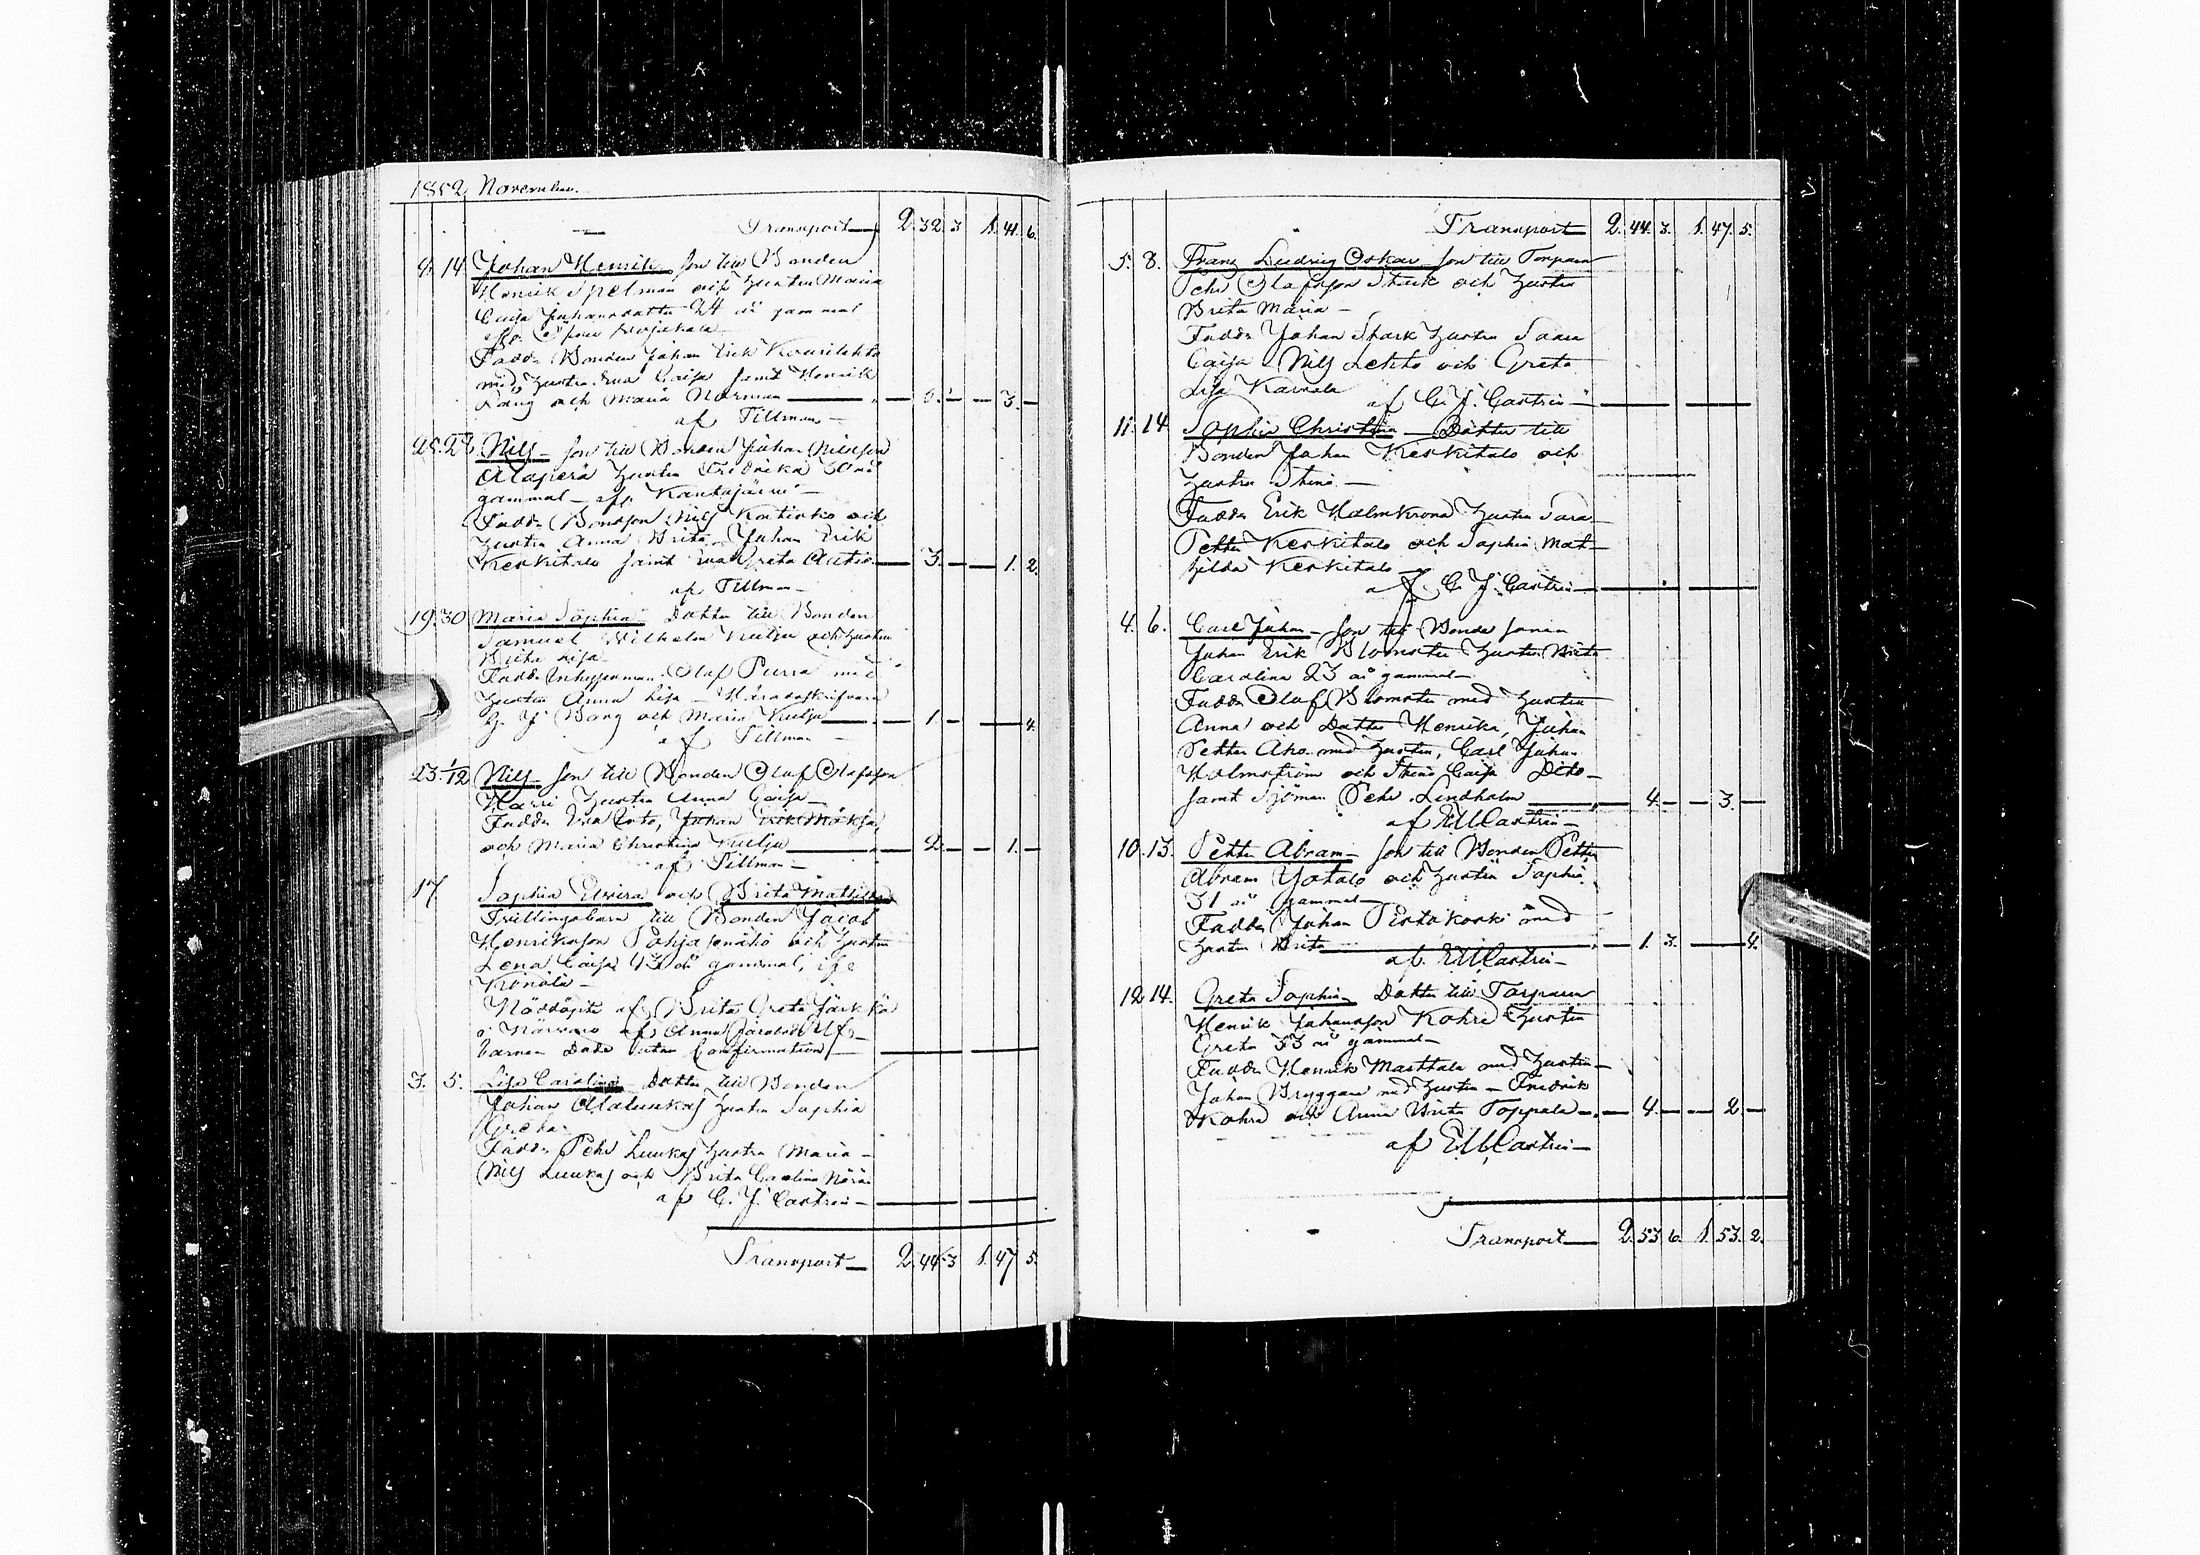 1852 November.
Transport 2. 32. 3 1. 41. 6.
8. 14 Johan Henrik Son till Bonden
Henrik Spelman och hustru Maria
Caisa Johansdotter 24 år gammal
Fadd. Bonden Johan Erik Kourilehto
med hustru Eva Caisa samt Henrik
Lång och Maria Norman — 3. —
af Tillman —
25. 28. Nils — Son till Bonden Johan Nilsson
Alaperä hustru Fredrika 30 år
gammal — Kantojärvi —
Fadd. Bondson Nils Kutisko och
hustru Anna Brita, Johan Erik
Keskitalo samt Eva Greta Autio — 3. — — 1. 2.
af Tillman —
19. 30 Maria Sophia Dotter till Bonden
Samuel Wilhelm Kulju och hustru
Brita Lisa
Fadd. Inhysesman Olaf Purra med
hustru Anna Lisa — Häradsskrifvare
Bong och Maria Kulju — 1. — 4.
af Tillman —
23. 1/12 Nils Son till Bonden Olaf Olofsson
Harri hustru Anna Caisa —
Fadder Eva Johan Erik
och Maria Christina Kulju — 2. — — 1. —
af Tillman —
17. Sophia Elvira och Brita Mathilda
Tvillingabarn till Bonden Jacob
Henriksson Pohjasenaho och hustru
Lena Caisa 43 år gammal,
Könölä —
Nöddöpte af Brita Greta Järkkä
i närvaro af Anna
barnen döde utan Confirmation —
3. 5. Lisa Carolina Dotter till Bonden
Johan Alaluukas hustru Sophia
Greta
Fadd. Pehr Luukas hustru Maria —
Nils Luukas och Brita Carolina
af C. J. Castrén —
Transport — 2. 44. 3 1. 47 5.
Transport 2. 44. 3. 1. 47. 5.
5. 8. Franz Ludvig Oskar Son till Torparn
Pehr Olafsson Stark och hustru
Brita Maria —
Fadd. Johan Stark hustru Saara
Caisa Nils Lehto och Greta
Lisa
af C. J. Castrén —
11. 14 Sophia Christina — Dotter till
Bonden Johan Keskitalo och
hustru Stina —
Fadd. Erik Malmkrona hustru Sara
Petter Keskitalo och Sophia Mat-
hilda Keskitalo —
af C. J. Castrén —
4. 6. Carl Johan — Son till Bonde sonen
Johan Erik Blomster hustru Brita
Carolina 23 år gammal —
Fadd. Olaf Blomster med hustru
Anna och Dotter Henrika, Johan
Petter Aho med hustru, Carl Johan
Holmström och Stina Caisa Dito —
samt Sjöman Pehr Lindholm — 4. — — 3. —
af E M Castrén —
10. 13. Petter Abram — Son till Bonden Petter
Abram Yotalo och hustru Sophia
31 år gammal —
Fadder Johan Pistokoski med
hustru Brita — 1. 3. — 4.
af. E M Castrén —
12 14. Greta Sophia — Dotter till Torparen
Henrik Johansson Kohre hustru
Greta 33 år gammal —
Fadd. Henrik Marttala med hustru —
Johan Bryggare med hustru — Fredrik
Kohre och Anna Brita Toppala — 4. — — 2 —
af E M Castrén —
Transport — 2. 53 6. 1. 53. 2.